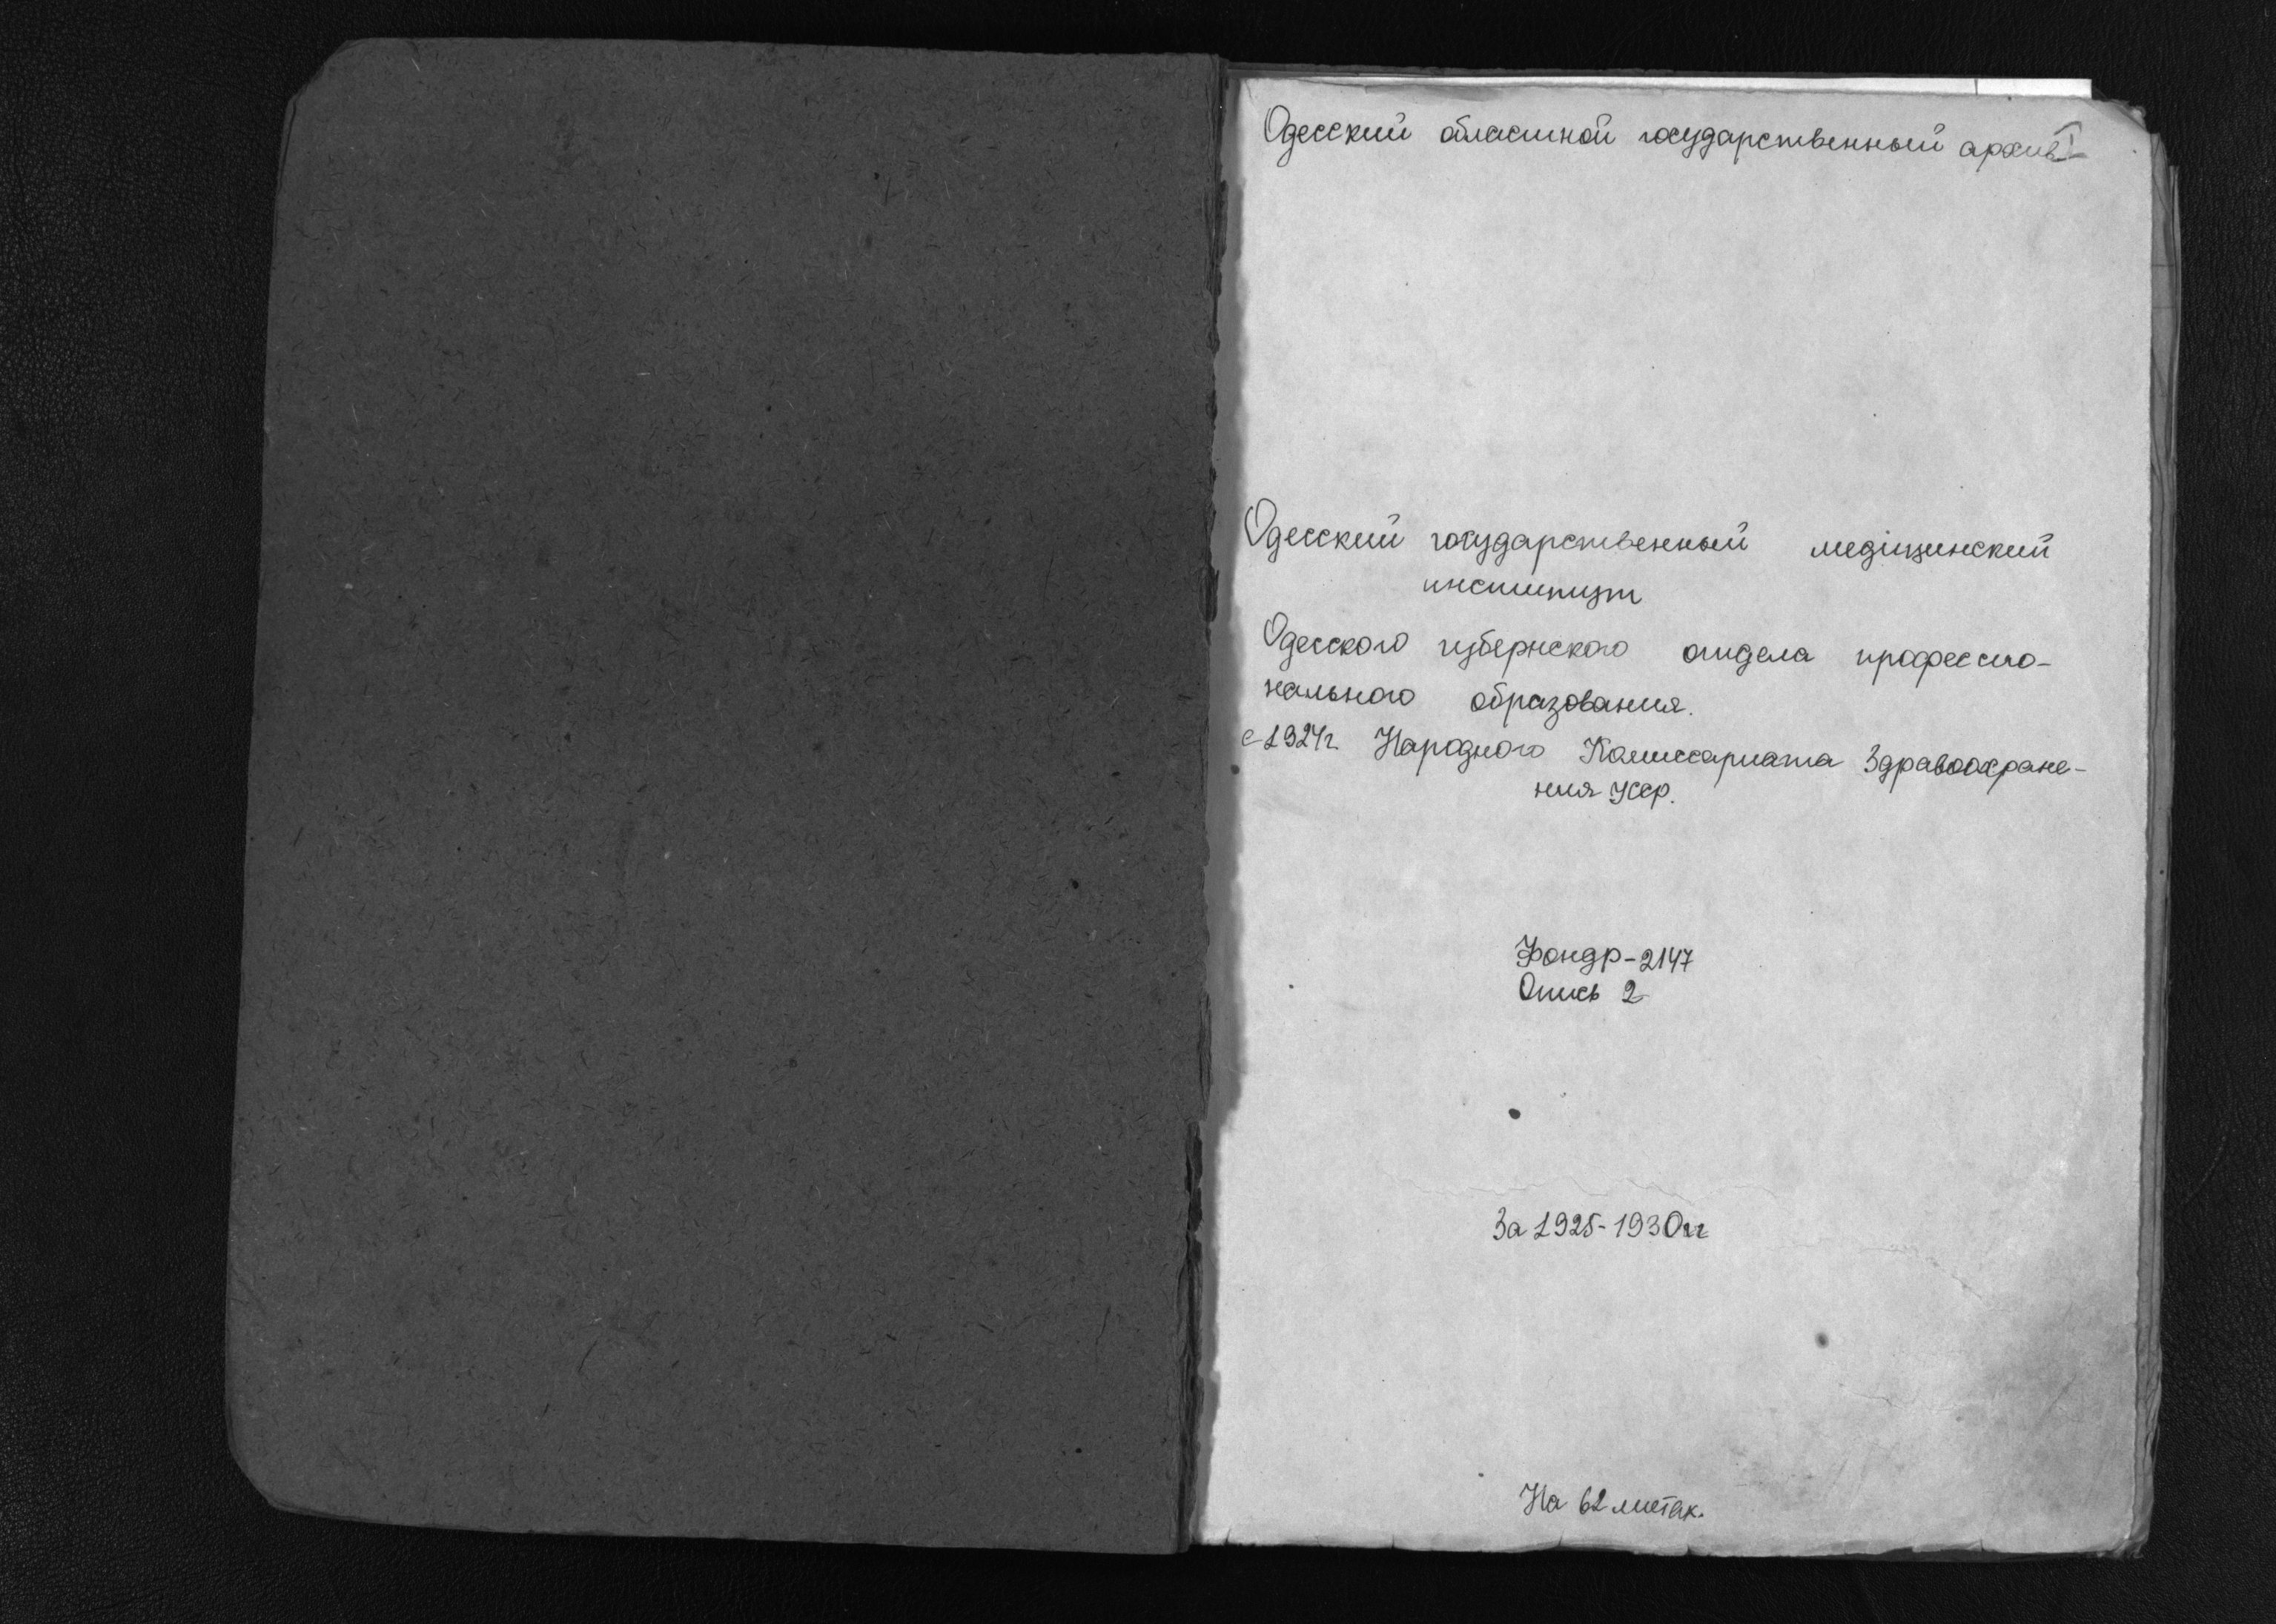 Одесский областной государственный архив
I
Одесский государственный медіцинский
институт
Одесского губернского отдела профессио-
нального образования.
с 1924г. Народного Комиссариата Здравоохране-
ния УССР.
Фонд Р-2147
Опись 2
За 1925-1930гг
На 62 листах.